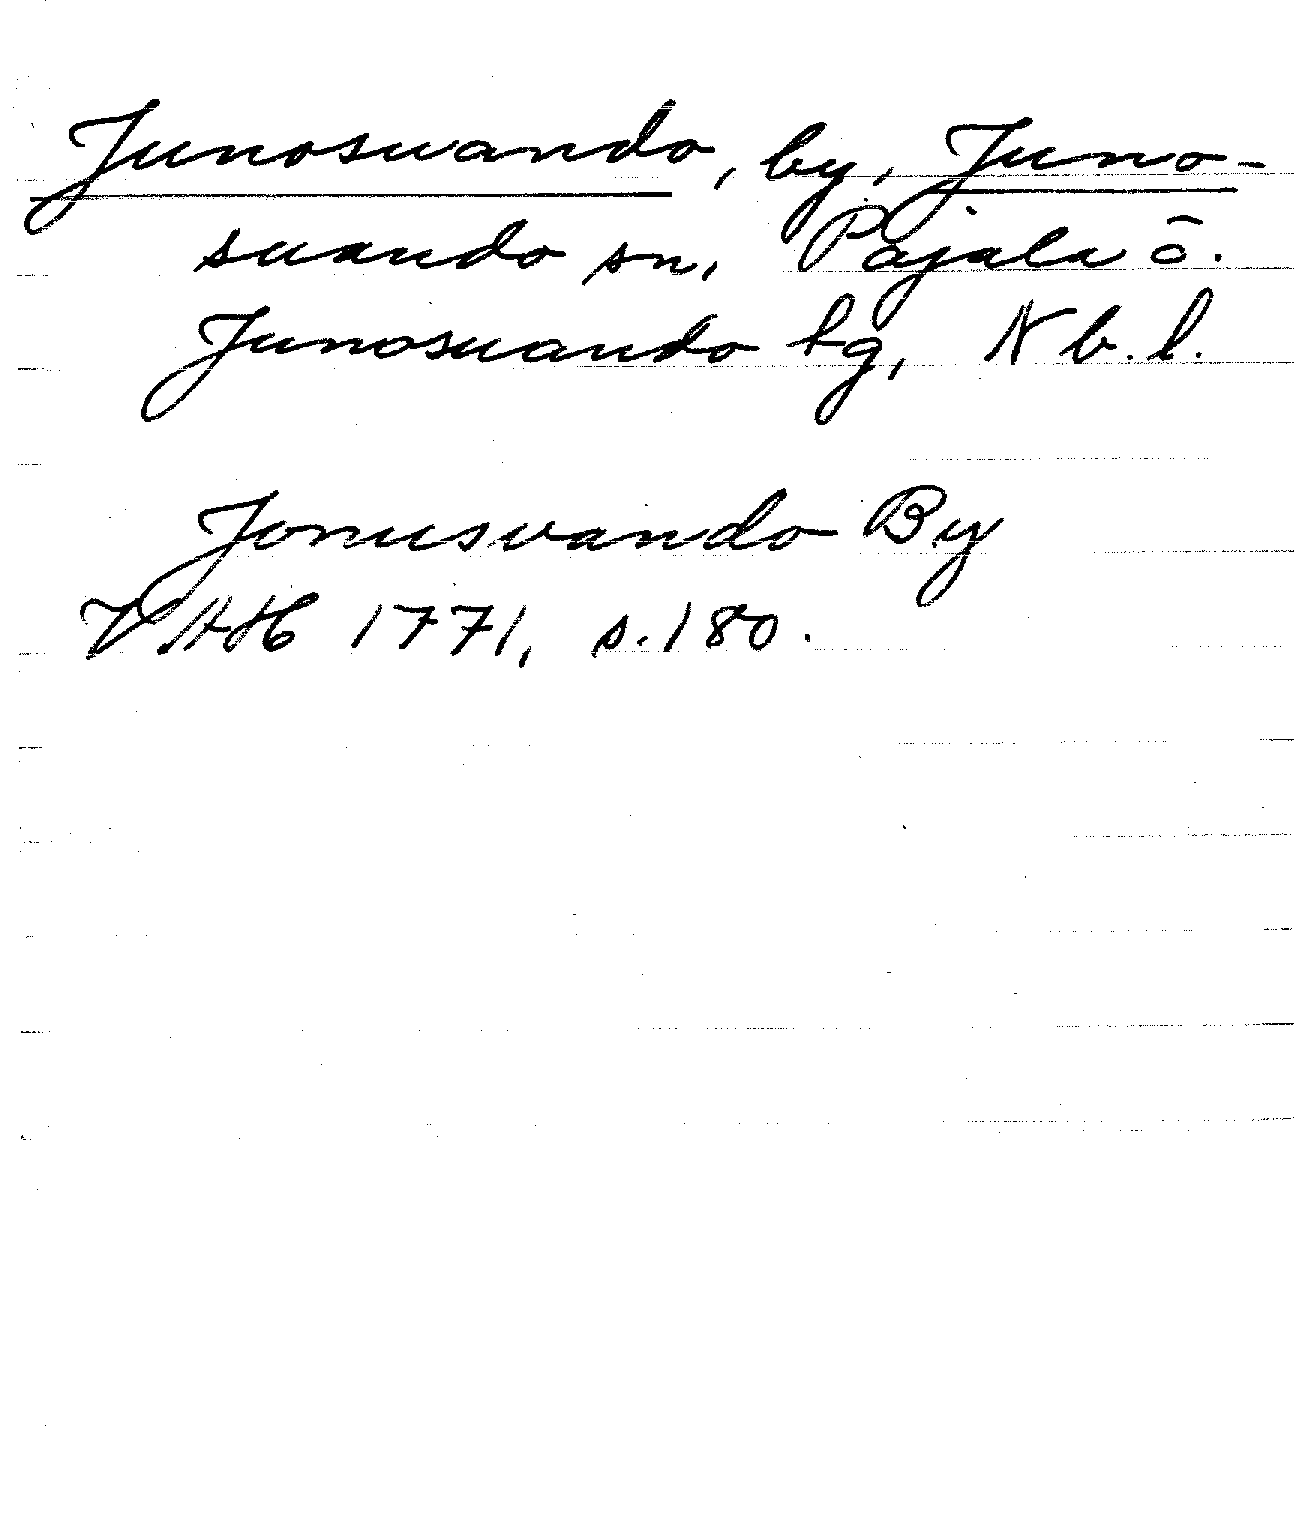 Junosuando, by, Juno-
suando sn, Pajala ö.
Junosuando tg, Nb. l.
Jonusvando By
VAH 1771, s. 180.